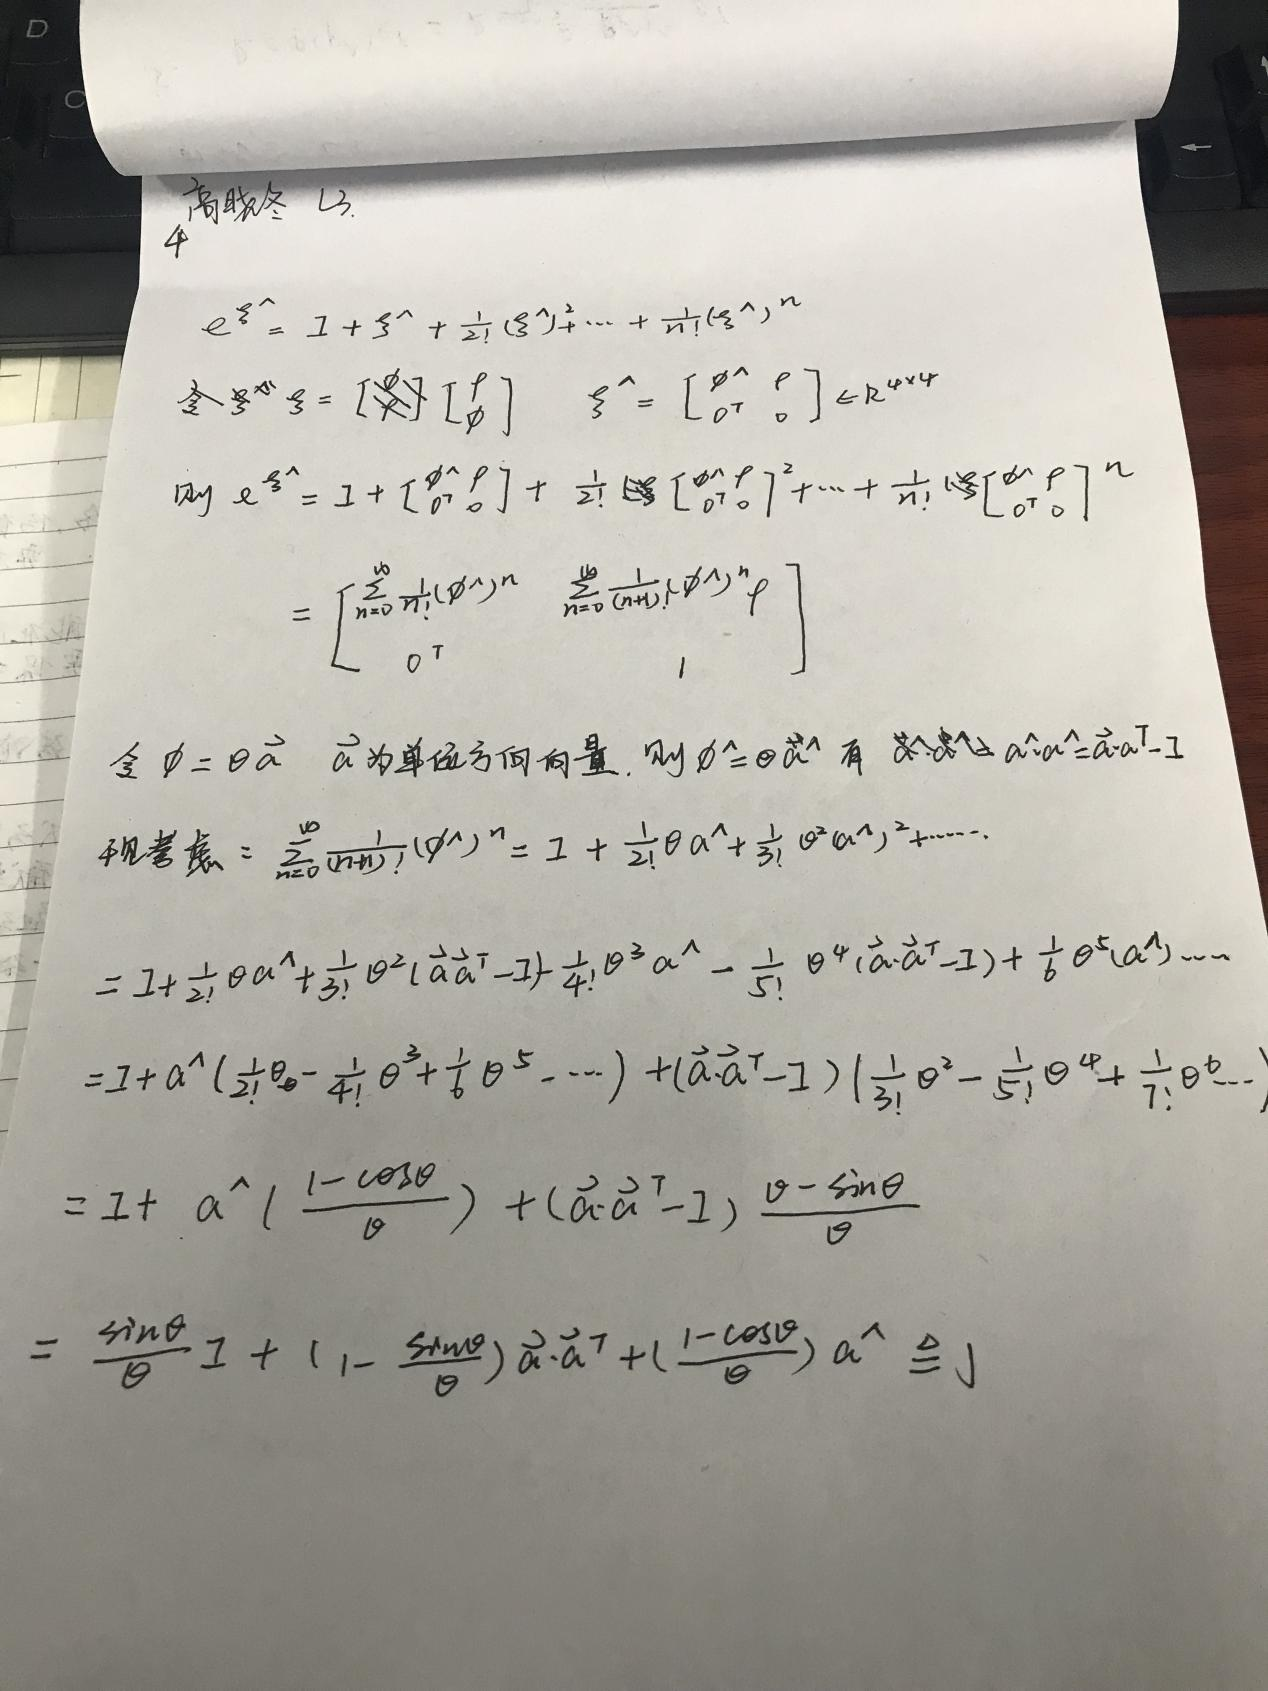 高晓冬 L3.
4
e^{ξ^∧} = I + ξ^∧ + \frac{1}{2!}(ξ^∧)^2 + ⋯ + \frac{1}{n!}(ξ^∧)^n
令 ξ = [ρ ϕ] ξ^∧ = [ϕ^∧ ρ; 0^T 0] ∈ R^{4×4}
则 e^{ξ^∧} = I + [ϕ^∧ ρ; 0^T 0] + \frac{1}{2!} [ϕ^∧ ρ; 0^T 0]^2 + ⋯ + \frac{1}{n!} [ϕ^∧ ρ; 0^T 0]^n
= [\sum_{n=0}^{∞} \frac{1}{n!}(ϕ^∧)^n \sum_{n=0}^{∞} \frac{1}{(n+1)!}(ϕ^∧)^n ρ; 0^T 1]
令 ϕ = θ\vec{a} \vec{a} 为单位方向向量. 则 ϕ^∧ = θ\vec{a}^∧ 有 a^∧·a^∧ = \vec{a}·a^T - I
现考虑: \sum_{n=0}^{∞} \frac{1}{(n+1)!}(ϕ^∧)^n = I + \frac{1}{2!}θa^∧ + \frac{1}{3!}θ^2(a^∧)^2 + ⋯⋯
= I + \frac{1}{2!}θa^∧ + \frac{1}{3!}θ^2(\vec{a}\vec{a}^T - I) - \frac{1}{4!}θ^3a^∧ - \frac{1}{5!}θ^4(\vec{a}·\vec{a}^T - I) + \frac{1}{6}θ^5(a^∧) ⋯⋯
= I + a^∧(\frac{1}{2!}θ - \frac{1}{4!}θ^3 + \frac{1}{6}θ^5 - ⋯) + (\vec{a}·\vec{a}^T - I)(\frac{1}{3!}θ^2 - \frac{1}{5!}θ^4 + \frac{1}{7!}θ^6 ⋯)
= I + a^∧(\frac{1-cosθ}{θ}) + (\vec{a}·\vec{a}^T - I)\frac{θ-sinθ}{θ}
= \frac{sinθ}{θ}I + (1 - \frac{sinθ}{θ})\vec{a}·\vec{a}^T + (\frac{1-cosθ}{θ})a^∧ ≜ J